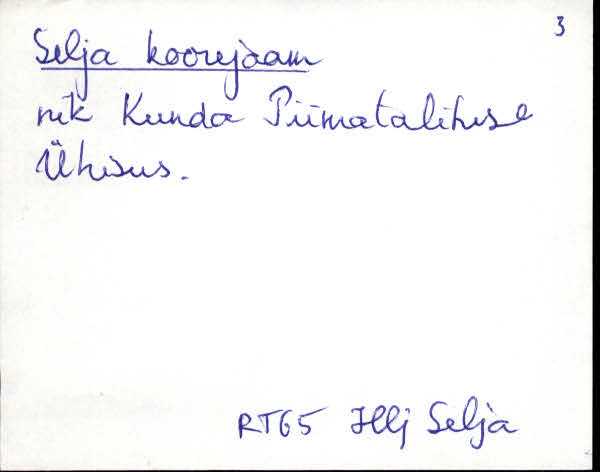 3
Selja koorejaam
rük Kunda Piimatalituse
Ühisus.
RT65 Illj Selja